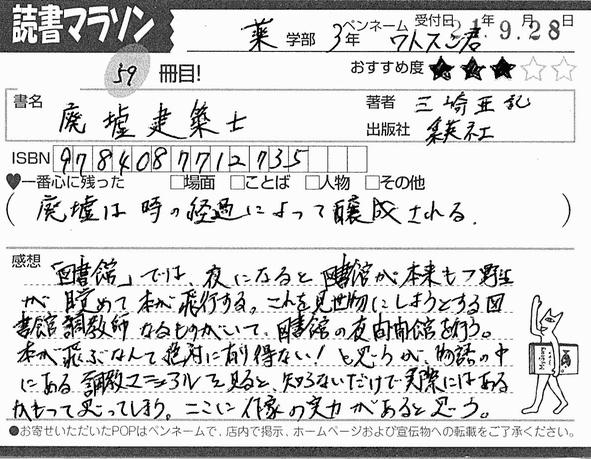 読書マラソン
薬 学部 3年 ペンネーム ワトスン君 受付日 21年9月28日
59 冊目! おすすめ度 ★★★☆☆
書名 廃墟建築士 著者 三崎亜記
出版社 集英社
ISBN 9784087712735
♥一番心に残った □場面 □ことば □人物 □その他
(廃墟は時の経過によって醸成される.)
感想 「図書館」では、夜になると図書館が本来もつ野生
が目覚めて本が飛行する。これを見世物にしようとする図
書館調教師なるものがいて、図書館の夜間開館を行う。
本が飛ぶなんて絶対に有り得ない!と思うが、物語の中
にある調教マニュアルを見ると、知らないだけで実際にはある
かもって思ってしまう。ここに作家の実力があると思う。
●お寄せいただいたPOPはペンネームで、店内で掲示、ホームページおよび宣伝物への転載をご了承ください。